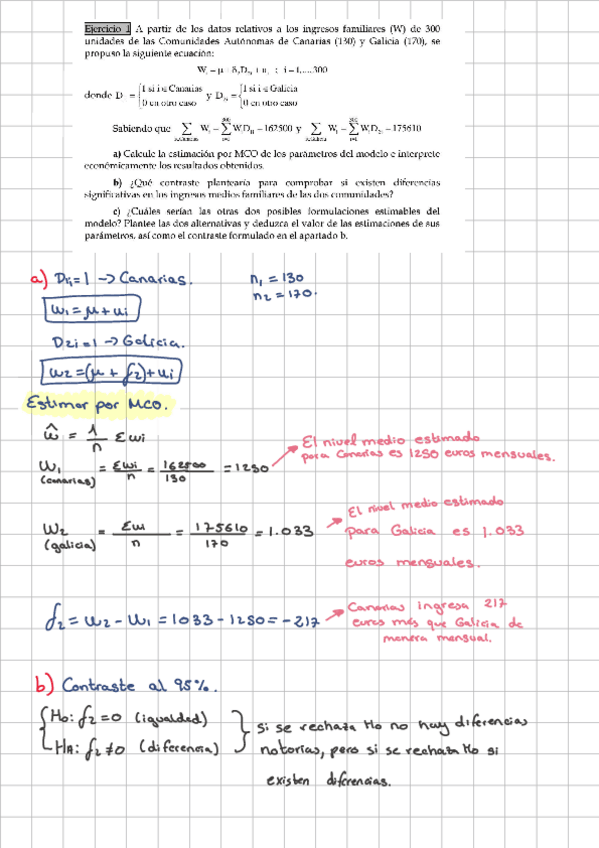 Ejercicio 1 A partir de los datos relativos a los ingresos familiares (W) de 300
unidades de las Comunidades Autónomas de Canarias (130) y Galicia (170), se
propuso la siguiente ecuación:
W_i = μ + δ_2D_2i + u_i ; i = 1,....300
donde D = {1 si i ∈ Canarias y D_2i = {1 si i ∈ Galicia
0 en otro caso 0 en otro caso
Sabiendo que Σ W_i = Σ W_iD_1i = 162500 y Σ W_i = Σ W_iD_2i = 175610
a) Calcule la estimación por MCO de los parámetros del modelo e interprete
económicamente los resultados obtenidos.
b) ¿Qué contraste plantearía para comprobar si existen diferencias
significativas en los ingresos medios familiares de las dos comunidades?
c) ¿Cuáles serían las otras dos posibles formulaciones estimables del
modelo? Plantee las dos alternativas y deduzca el valor de las estimaciones de sus
parámetros, así como el contraste formulado en el apartado b.
a) D1i=1 -> Canarias. n1 = 130
n2 = 170.
W1 = μ + ui
D2i=1 -> Galicia.
W2 = (μ + f2) + ui
Estimar por MCO.
ŵ = 1/n Σwi
W1 (canarias) = Σwi/n = 162500/130 = 1250
El nivel medio estimado
para Canarias es 1250 euros mensuales.
W2 (galicia) = Σwi/n = 175610/170 = 1.033
El nivel medio estimado
para Galicia es 1.033
euros mensuales.
f2 = W2 - W1 = 1033 - 1250 = -217
Canarias ingresa 217
euros más que Galicia de
manera mensual.
b) Contraste al 95%.
Ho: f2 = 0 (igualdad)
HA: f2 ≠ 0 (diferencia)
si se rechaza Ho no hay diferencias
notorias, pero si se rechaza Ho si
existen diferencias.